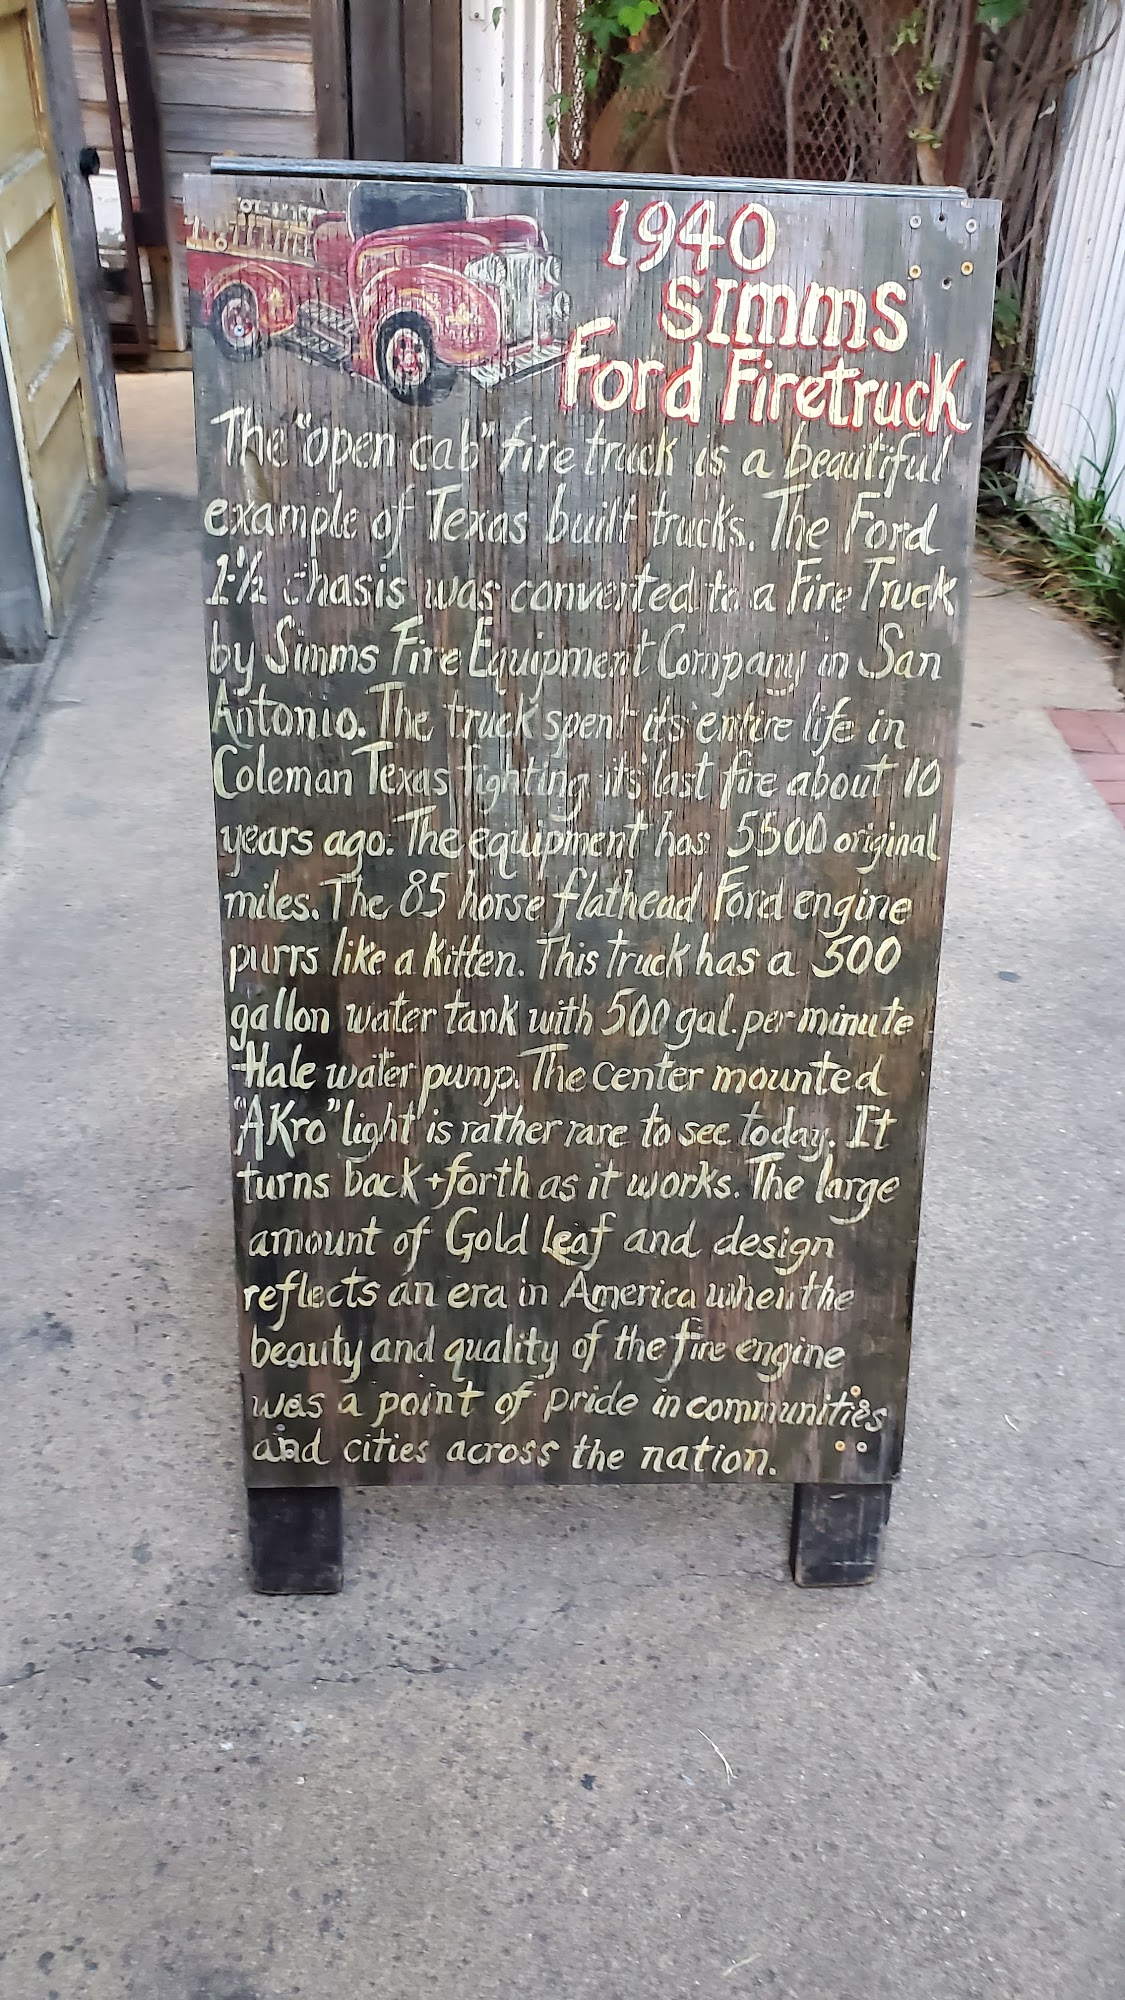 1940
Simms
Ford Firetruck
The "open cab" fire truck is a beautiful
example of Texas built trucks. The Ford
1-½ chasis was converted to a Fire Truck
by Simms Fire Equipment Company in San
Antonio. The truck spent its entire life in
Coleman Texas fighting it's last fire about 10
years ago. The equipment has 5500 original
miles. The 85 horse flathead Ford engine
purrs like a kitten. This truck has a 500
gallon water tank with 500 gal. per minute
Hale water pump. The center mounted
"AKro" light is rather rare to see today. It
turns back + forth as it works. The large
amount of Gold Leaf and design
reflects an era in America when the
beauty and quality of the fire engine
was a point of pride in communities
and cities across the nation.